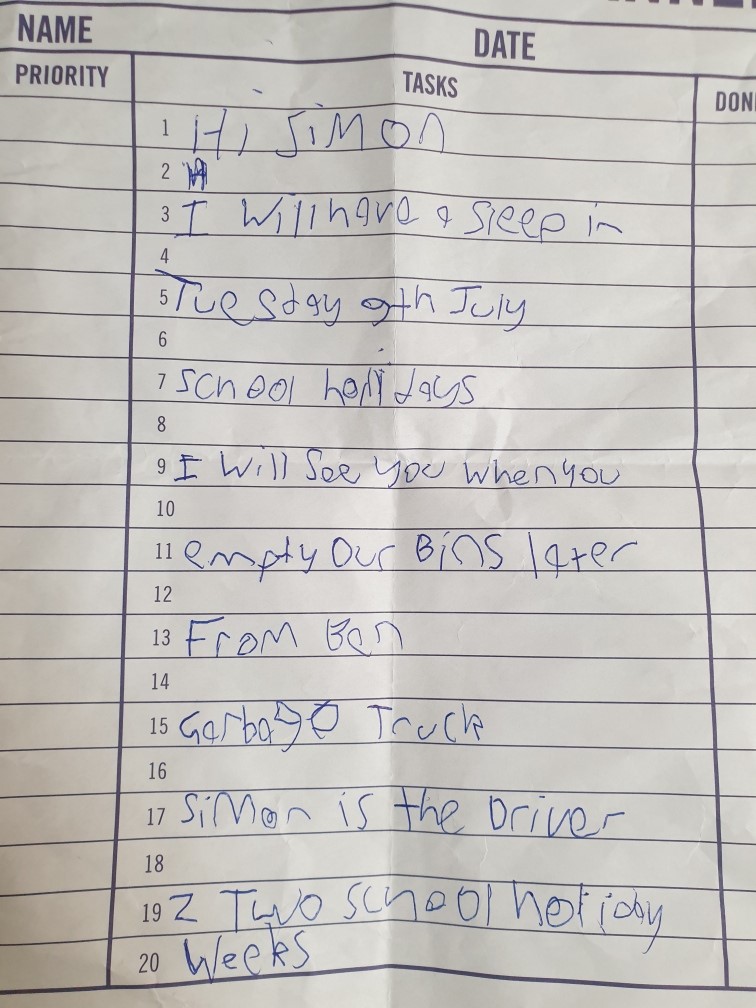 NAME DATE
PRIORITY TASKS DON
1 Hi SiMon
2
3 I Will have a sleep in
4
5 Tuesday 9th July
6
7 school holidays
8
9 I Will See you when you
10
11 empty Our Bins later
12
13 From Ben
14
15 Garbage Truck
16
17 SiMon is the Driver
18
19 2 Two school holiday
20 Weeks